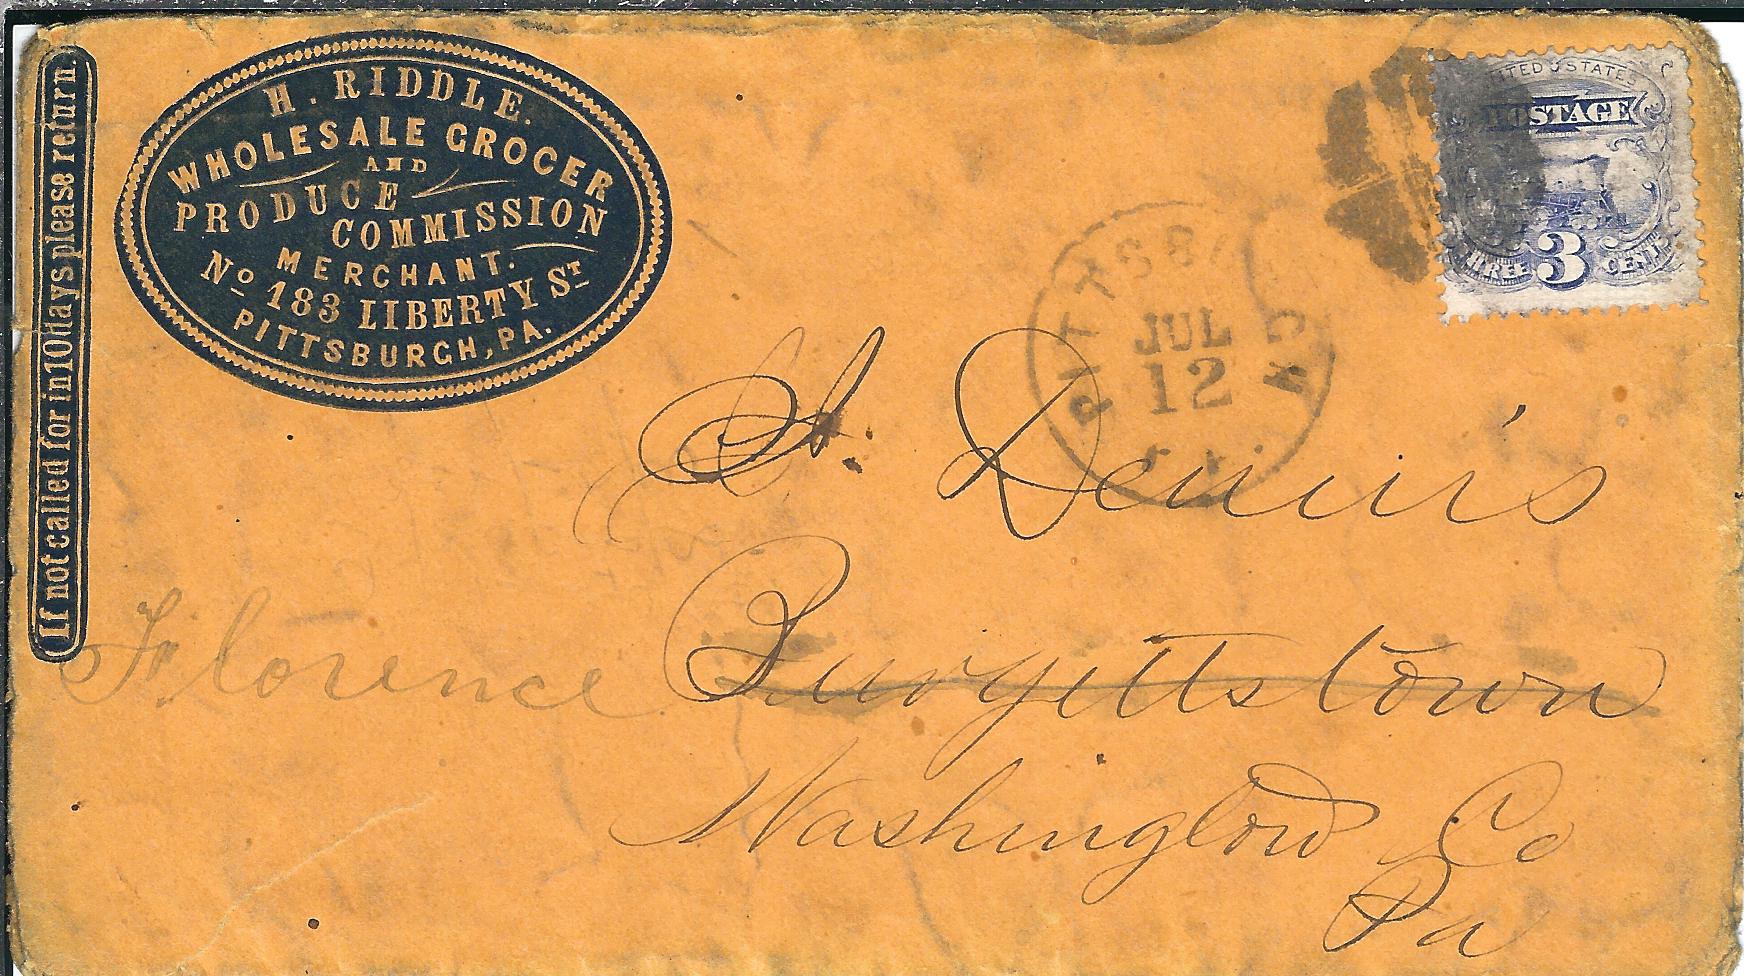 If not called for in 10 days please return.
H. RIDDLE.
WHOLESALE GROCER
AND
PRODUCE
COMMISSION
MERCHANT.
No 183 LIBERTY ST
PITTSBURCH, PA.
UNITED STATES
POSTAGE
THREE 3 CENTS
PITTSB CH
JUL
12
A. Dennis
Burgettstown
Florence
Washington Co
Pa